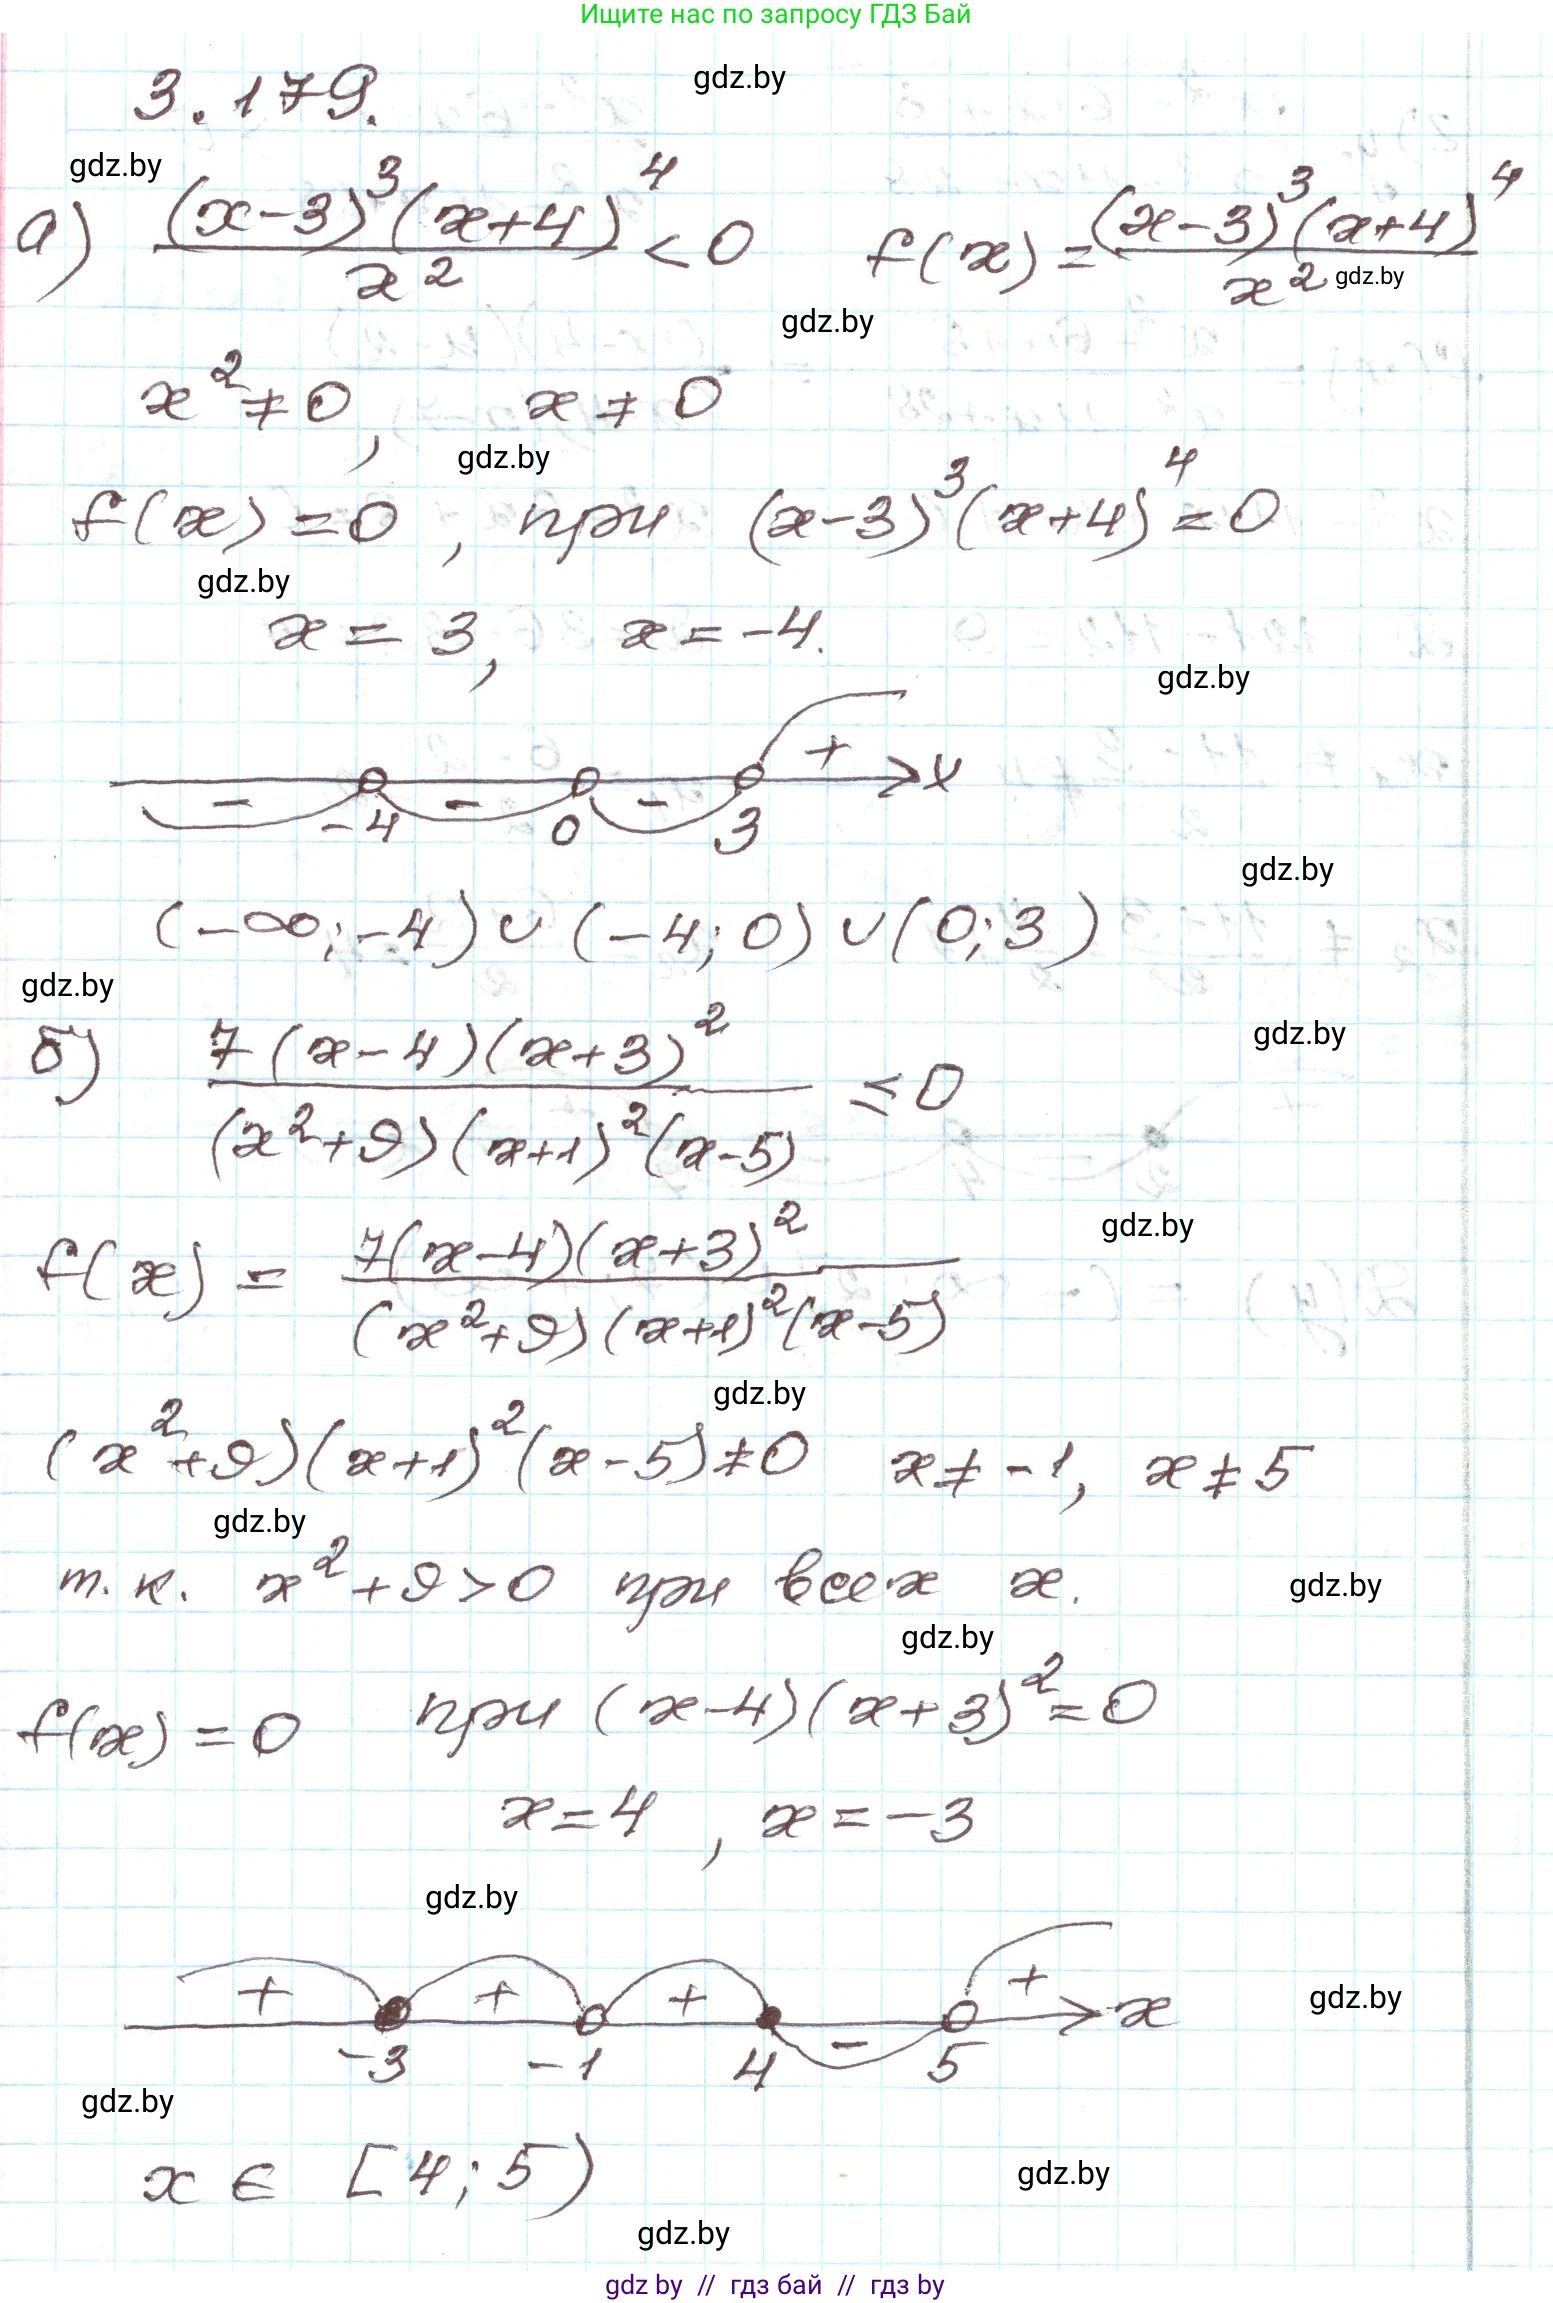 Ищите нас по запросу ГДЗ Бай
3.179.
gdz.by
gdz.by
а) (x-3)³(x+4)⁴ / x² < 0 f(x) = (x-3)³(x+4)⁴ / x²
gdz.by
gdz.by
x² ≠ 0, x ≠ 0
gdz.by
f(x) = 0, при (x-3)³(x+4)⁴ = 0
gdz.by
x = 3, x = -4.
gdz.by
+
- - - x
-4 0 3
gdz.by
(-∞; -4) ∪ (-4; 0) ∪ (0; 3)
gdz.by
gdz.by
б) 7(x-4)(x+3)² / (x²+9)(x+1)²(x-5) ≤ 0
gdz.by
f(x) = 7(x-4)(x+3)² / (x²+9)(x+1)²(x-5)
gdz.by
(x²+9)(x+1)²(x-5) ≠ 0 x ≠ -1, x ≠ 5
gdz.by
т.к. x²+9 > 0 при всех x.
gdz.by
gdz.by
f(x) = 0 при (x-4)(x+3)² = 0
x = 4, x = -3
gdz.by
+ + + - + x
gdz.by
-3 -1 4 5
gdz.by
x ∈ [4; 5)
gdz.by
gdz.by
gdz by // гдз бай // гдз by